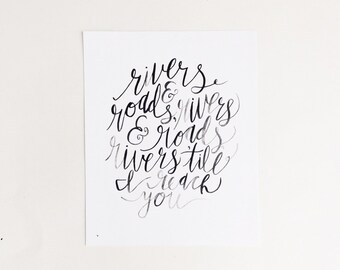 rivers
& roads, rivers
& roads
rivers 'til
I reach
you